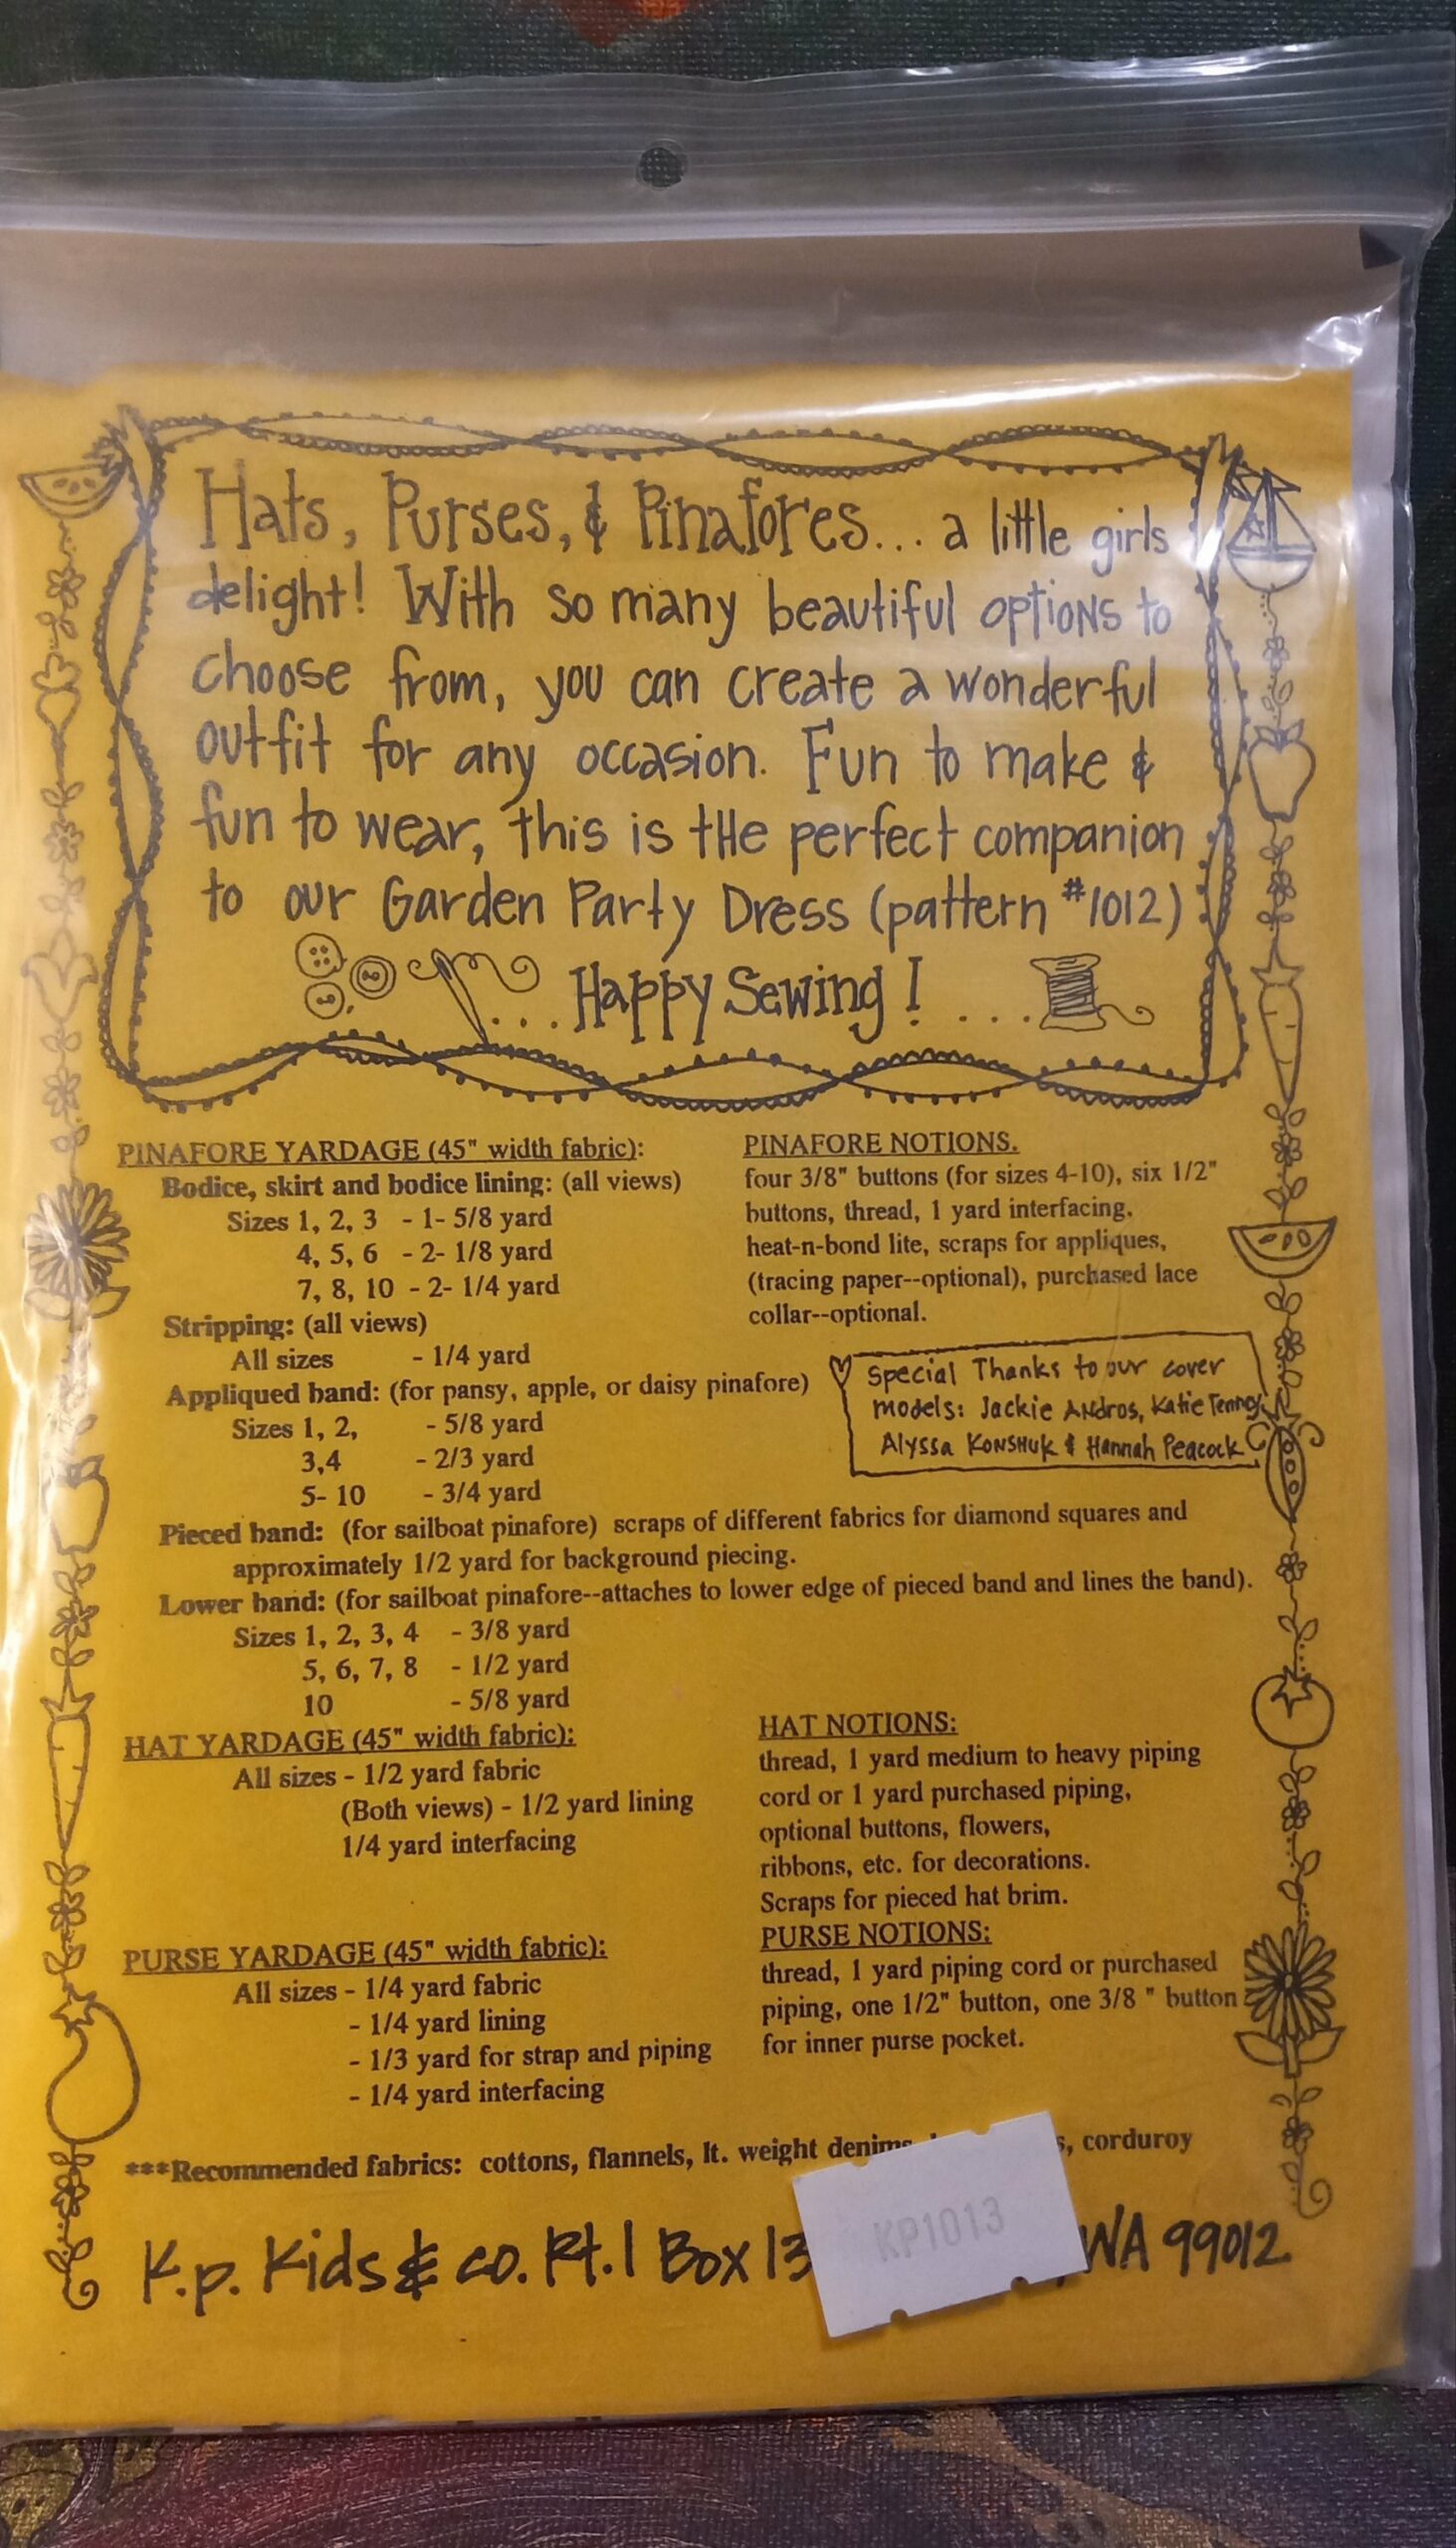 Hats, Purses, & Pinafores... a little girls
delight! With so many beautiful options to
choose from, you can create a wonderful
outfit for any occasion. Fun to make &
fun to wear, this is the perfect companion
to our Garden Party Dress (pattern #1012)
... Happy Sewing! ...
PINAFORE YARDAGE (45" width fabric):
Bodice, skirt and bodice lining: (all views)
Sizes 1, 2, 3 - 1- 5/8 yard
4, 5, 6 - 2- 1/8 yard
7, 8, 10 - 2- 1/4 yard
Stripping: (all views)
All sizes - 1/4 yard
Appliqued band: (for pansy, apple, or daisy pinafore)
Sizes 1, 2, - 5/8 yard
3,4 - 2/3 yard
5- 10 - 3/4 yard
PINAFORE NOTIONS.
four 3/8" buttons (for sizes 4-10), six 1/2"
buttons, thread, 1 yard interfacing,
heat-n-bond lite, scraps for appliques,
(tracing paper--optional), purchased lace
collar--optional.
Special Thanks to our cover
models: Jackie Andros, Katie Tenney,
Alyssa Konshuk & Hannah Peacock
Pieced band: (for sailboat pinafore) scraps of different fabrics for diamond squares and
approximately 1/2 yard for background piecing.
Lower band: (for sailboat pinafore--attaches to lower edge of pieced band and lines the band).
Sizes 1, 2, 3, 4 - 3/8 yard
5, 6, 7, 8 - 1/2 yard
10 - 5/8 yard
HAT YARDAGE (45" width fabric):
All sizes - 1/2 yard fabric
(Both views) - 1/2 yard lining
1/4 yard interfacing
HAT NOTIONS:
thread, 1 yard medium to heavy piping
cord or 1 yard purchased piping,
optional buttons, flowers,
ribbons, etc. for decorations.
Scraps for pieced hat brim.
PURSE YARDAGE (45" width fabric):
All sizes - 1/4 yard fabric
- 1/4 yard lining
- 1/3 yard for strap and piping
- 1/4 yard interfacing
PURSE NOTIONS:
thread, 1 yard piping cord or purchased
piping, one 1/2" button, one 3/8 " button
for inner purse pocket.
***Recommended fabrics: cottons, flannels, lt. weight denims, corduroy
K.p. Kids & co. Rt.1 Box 13 WA 99012
KP1013